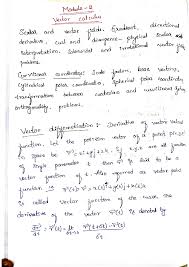 Module-2
Vector calculus
Scalar and vector fields. Gradient, directional
derivative, curl and divergence - physical
interpretation, Solenoidal and irrotational vector
problems.
Curvilinear coordinates: Scale factors, base vectors,
Cylindrical polar coordinates, Spherical polar coordinates
transformations between cartesian and curvilinear
orthogonality, problems.
Vector differentiation: Derivative of vector valued
function. Let the position vector of a point p(x,y,z)
in space be
of single parameter t, then is said to be a
vector function of t. Also referred as vector point
function
called vector function of the
derivative of the vector is denoted by